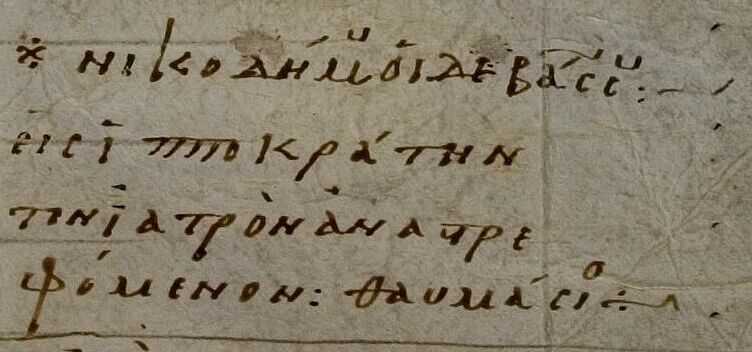 ※ νικοδήμου οἱ δὲ βάσσου :~
εἰς ἱπποκράτην
τὸν ἰατρὸν ἀνατρε
φόμενον : θαυμάσιο ÷